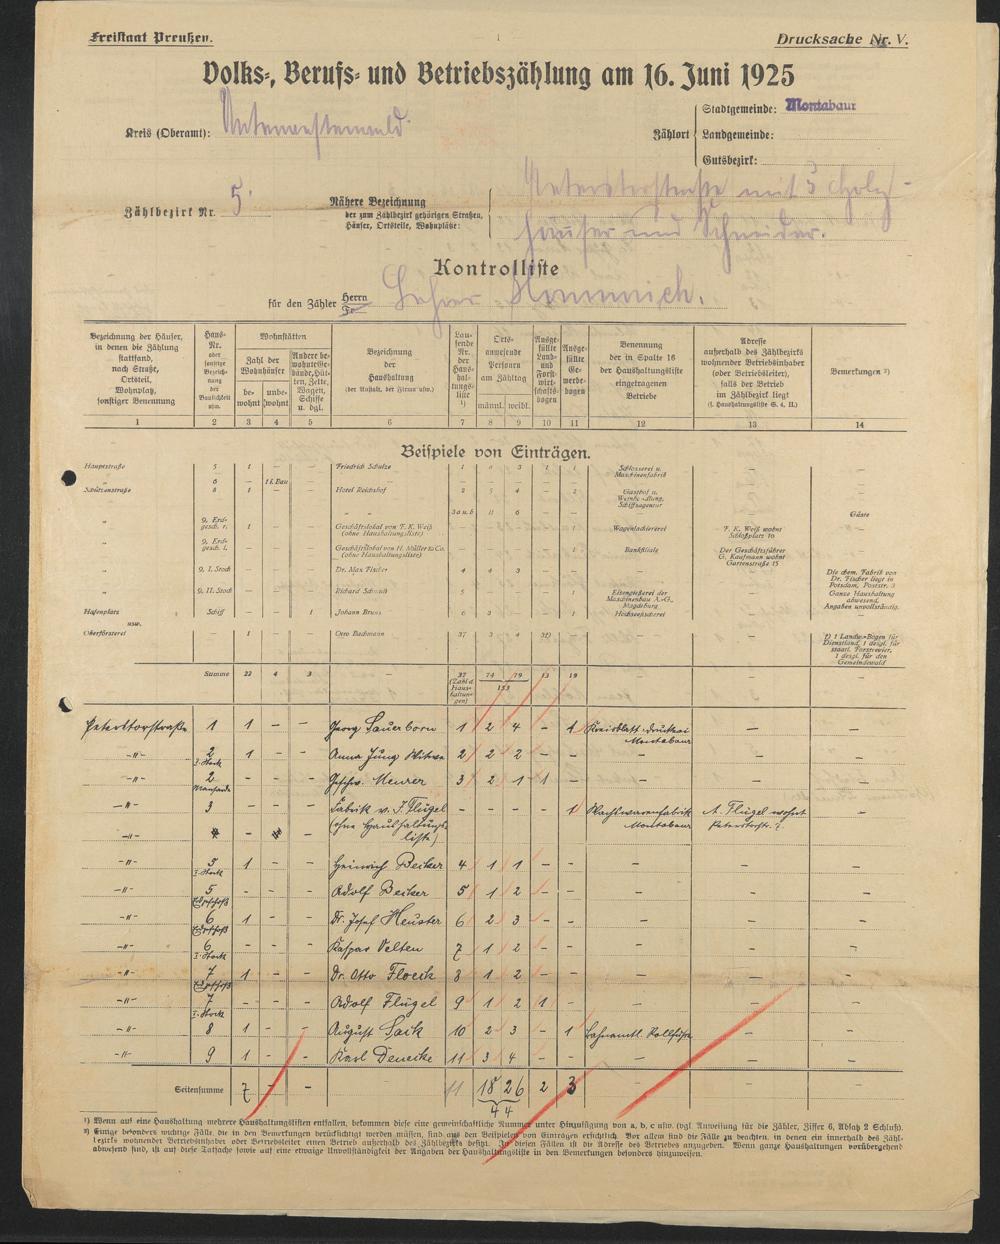 Freistaat Preußen.
1
Drucksache Nr. V.
Volks-, Berufs- und Betriebszählung am 16. Juni 1925
Kreis (Oberamt): Unterwesterwald
Zählort
Stadtgemeinde: Montabaur
Landgemeinde:
Gutsbezirk:
Zählbezirk Nr. 5
Nähere Bezeichnung
der zum Zählbezirk gehörigen Straßen,
Häuser, Ortsteile, Wohnplätze:
mit 3 Holz-
häuser und Schneider.
Kontrolliste
für den Zähler Herrn Lehrer
Fr.
Bezeichnung der Häuser, in denen die Zählung stattfand, nach Straße, Ortsteil, Wohnplatz, sonstiger Benennung
Haus-Nr. oder sonstige Bezeichnung der Baulichkeit usw.
Wohnstätten
Zahl der Wohnhäuser
bewohnt
unbewohnt
Andere bewohnte Gebäude, Hütten, Zelte, Wagen, Schiffe u. dgl.
Bezeichnung der Haushaltung
(der Anstalt, der Firma usw.)
Laufende Nr. der Haushaltungsliste ¹)
Ortsanwesende Personen am Zähltag
männl. weibl.
Ausgefüllte Land- und Forstwirtschaftsbogen
Ausgefüllte Gewerbebogen
Benennung der in Spalte 16 der Haushaltungsliste eingetragenen Betriebe
Adresse außerhalb des Zählbezirks wohnender Betriebsinhaber (oder Betriebsleiter), falls der Betrieb im Zählbezirk liegt
(f. Haushaltungsliste S. 4, II.)
Bemerkungen ²)
1 2 3 4 5 6 7 8 9 10 11 12 13 14
Beispiele von Einträgen.
Hauptstraße 5 1 – – Friedrich Schulze 1 3 1 1 Schlosserei u. Maschinenfabrik – –
„ 6 – 1 i. Bau – – – – – – – – – –
Schützenstraße 8 1 – – Hotel Reichshof 2 5 4 – 2 Gasthof u. Weinhandlung, Schiffsagentur – –
„ – – – – „ 3a u. b 11 6 – – – – Gäste
„ 9, Erdgesch. r. 1 – – Geschäftslokal von F. K. Weiß (ohne Haushaltungsliste) – – – – 1 Wagenlackiererei F. K. Weiß wohnt Schloßplatz 10 –
„ 9, Erdgesch. l. – – – Geschäftslokal von H. Müller & Co. (ohne Haushaltungsliste) – – – – 1 Bankfiliale Der Geschäftsführer G. Kaufmann wohnt Gartenstraße 15 –
„ 9, I. Stock – – – Dr. Max Fischer 4 4 3 – – – – Die chem. Fabrik von Dr. Fischer liegt in Potsdam, Poststr. 3
„ 9, II. Stock – – – Richard Schmidt 5 – – – – Eisengießerei der Maschinenbau A.-G., Magdeburg – Ganze Haushaltung abwesend, Angaben unvollständig.
Hafenplatz Schiff – – 1 Johann Bruns 6 2 – 1 Hochseefischerei – –
usw.
Oberförsterei – 1 – – Otto Bachmann 37 3 4 3²) – – – ²) 1 Landw.-Bogen für Dienstland, 1 desgl. für staatl. Forstrevier, 1 desgl. für den Gemeindewald
Summe 22 4 3 – 37 (Zahl d. Haushaltungen) 74 79 13 19
153
Peterstorstraße 1 1 – – Georg Sauerborn 1 2 4 – 1 Kreisblatt-Druckerei Montabaur – –
–"– 2 I. Stock 1 – – Anna Jung Witwe 2 2 2 – – – – –
–"– 2 Mansarde – – Geschw. Meurer 3 2 1 1 – – – –
–"– 3 – – – Fabrik v. J. Flügel (ohne Haushaltungsliste) – – – – 1 Montabaur A. Flügel wohnt Peterstorstr. 7 –
–"–
–"– 5 I. Stock 1 – – Heinrich Becker 4 1 1 – – – – –
–"– 5 – – Adolf Becker 5 1 2 – – – – –
–"– 6 1 – – Dr. Josef Heuster 6 2 3 – – – – –
–"– 6 I. Stock – – Kaspar Velten 7 1 2 – – – – –
–"– 7 1 – – Dr. Otto Floeck 8 1 2 – – – – –
–"– 7 I. Stock – – – Adolf Flügel 9 1 2 1 – – – –
–"– 8 1 – – August 10 2 3 – 1 Bahnamtl. – –
–"– 9 1 – – Karl Denecke 11 3 4 – – – – –
Seitensumme 7 – – 11 18 26 2 3 – – –
44
¹) Wenn auf eine Haushaltung mehrere Haushaltungslisten entfallen, bekommen diese eine gemeinschaftliche Nummer unter Hinzufügung von a, b, c usw. (vgl. Anweisung für die Zähler, Ziffer 6, Absatz 2 Schluß).
²) Einige besonders wichtige Fälle, die in den Bemerkungen berücksichtigt werden müssen, sind aus den Beispielen von Einträgen ersichtlich. Vor allem sind die Fälle zu beachten, in denen ein innerhalb des Zähl-
bezirks wohnender Betriebsinhaber oder Betriebsleiter einen Betrieb außerhalb des Zählbezirks besitzt. In diesen Fällen ist die Adresse des Betriebes anzugeben. Wenn ganze Haushaltungen vorübergehend
abwesend sind, ist auf diese Tatsache sowie auf eine etwaige Unvollständigkeit der Angaben der Haushaltungsliste in den Bemerkungen besonders hinzuweisen.